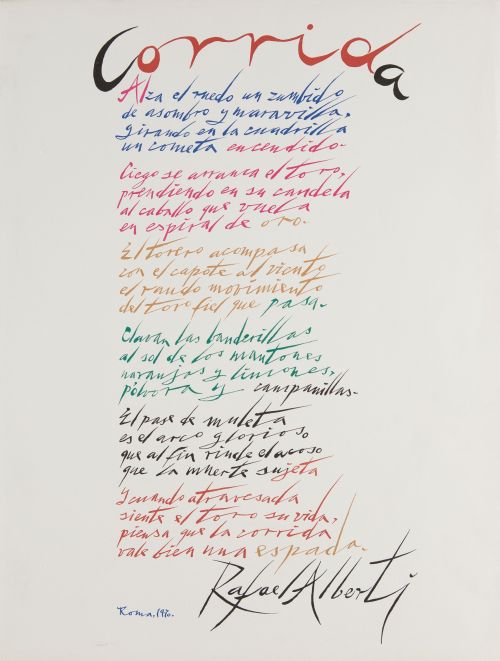 Corrida
Alza el ruedo un zumbido
de asombro y maravilla,
girando en la cuadrilla
un cometa encendido.
Ciego se arranca el toro,
prendiendo en su candela
al caballo que vuela
en espiral de oro.
El torero acompasa
con el capote al viento
el raudo movimiento
del toro fiel que pasa.
Clavan las banderillas
al sol de los mantones
naranjas y limones,
pólvora y campanillas.
El pase de muleta
es el arco glorioso
que al fin rinde el acoso
que la muerte sujeta
Y cuando atravesada
siente el toro su vida,
piensa que la corrida
vale bien una espada.
Rafael Alberti
Roma, 1970.